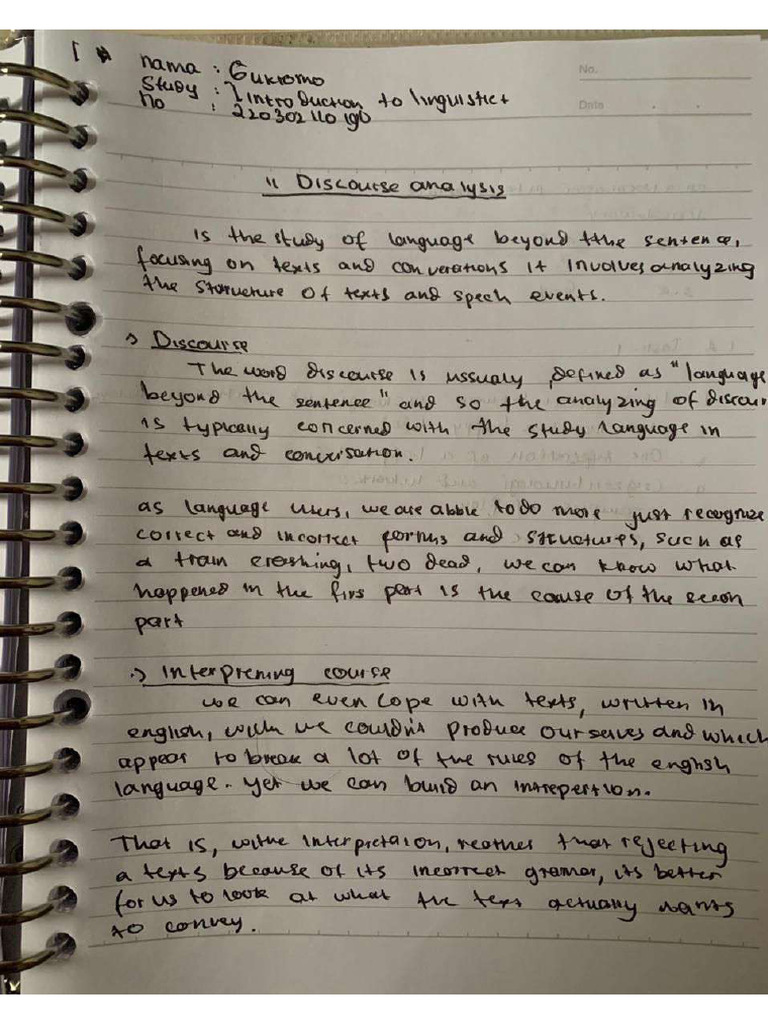 1
nama : Gukromo
No.
Study : Introduction to linguistict
no : 220302110190
Data
" Discourse analysis
is the study of language beyond tthe sentence,
focusing on texts and converations it involves analyzing
the starueture of texts and spech events.
Discourse
The word discourse is ussualy, defined as "language
beyond the sentence" and so the analyzing of discour
is typically concerned with the study language in
texts and convirsation.
as language users, we are abble to do more just recognize
correct and incorrect forms and structures, such as
a train creshing, two dead, we can know what
happened in the firs part is the couse of the secon
part
Interprening course
we can even cope with texts, written in
english, wich we couldn's produce ourselves and which
appear to break a lot of the rules of the english
language. yet we can build an intrepertion.
That is, withe interpretaion, reather that rejecting
a texts because of its incorrect gremar, its better
for us to look at what the text actually wants
to convey.